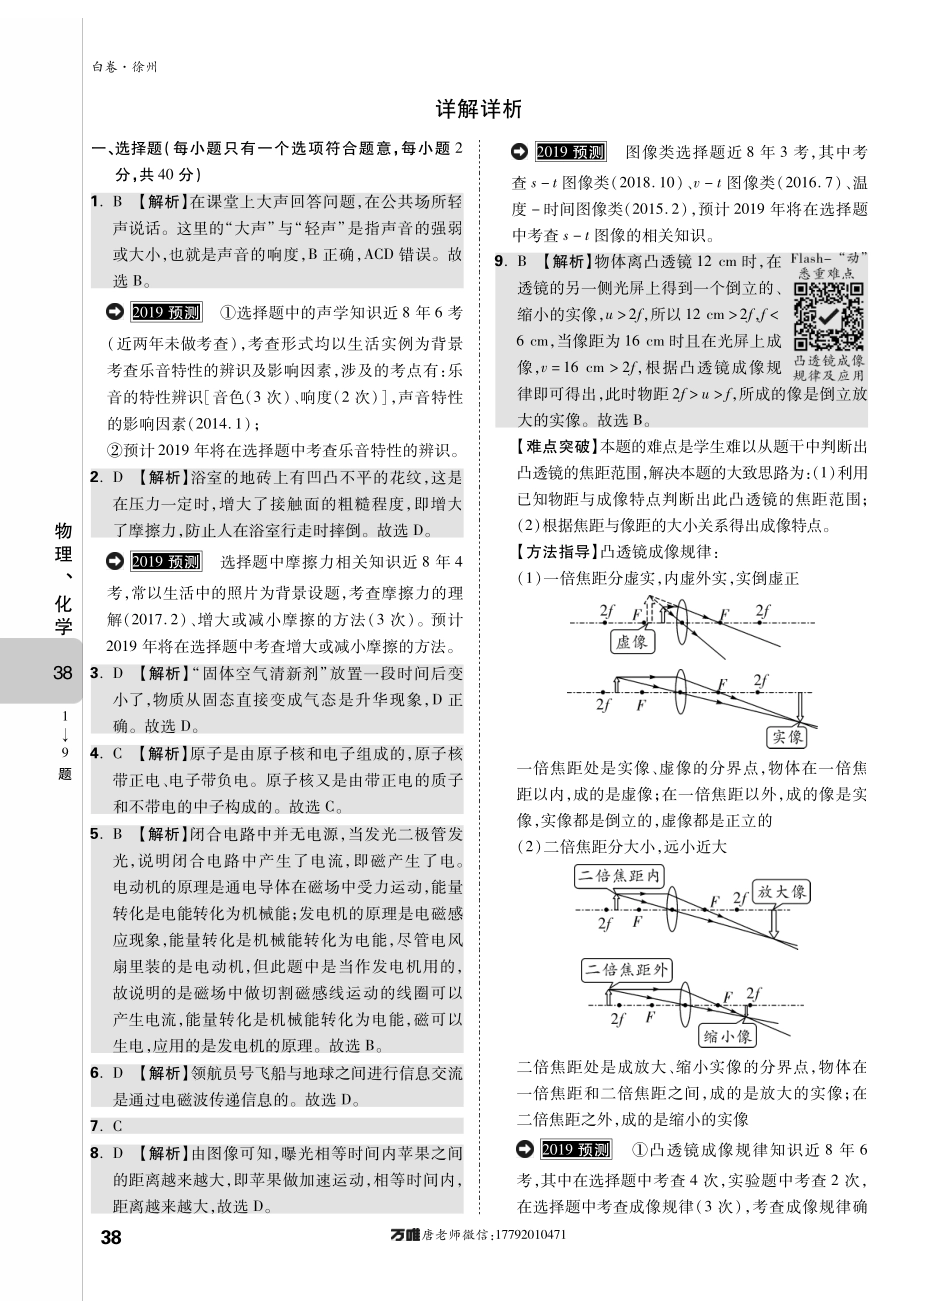 白卷·徐州
详解详析
一、选择题(每小题只有一个选项符合题意,每小题2
分,共40分)
1. B 【解析】在课堂上大声回答问题,在公共场所轻
声说话。这里的“大声”与“轻声”是指声音的强弱
或大小,也就是声音的响度,B正确,ACD错误。故
选B。
2019预测 ①选择题中的声学知识近8年6考
(近两年未做考查),考查形式均以生活实例为背景
考查乐音特性的辨识及影响因素,涉及的考点有:乐
音的特性辨识[音色(3次)、响度(2次)],声音特性
的影响因素(2014.1);
②预计2019年将在选择题中考查乐音特性的辨识。
2. D 【解析】浴室的地砖上有凹凸不平的花纹,这是
在压力一定时,增大了接触面的粗糙程度,即增大
了摩擦力,防止人在浴室行走时摔倒。故选D。
2019预测 选择题中摩擦力相关知识近8年4
考,常以生活中的照片为背景设题,考查摩擦力的理
解(2017.2)、增大或减小摩擦的方法(3次)。预计
2019年将在选择题中考查增大或减小摩擦的方法。
3. D 【解析】“固体空气清新剂”放置一段时间后变
小了,物质从固态直接变成气态是升华现象,D正
确。故选D。
4. C 【解析】原子是由原子核和电子组成的,原子核
带正电、电子带负电。原子核又是由带正电的质子
和不带电的中子构成的。故选C。
5. B 【解析】闭合电路中并无电源,当发光二极管发
光,说明闭合电路中产生了电流,即磁产生了电。
电动机的原理是通电导体在磁场中受力运动,能量
转化是电能转化为机械能;发电机的原理是电磁感
应现象,能量转化是机械能转化为电能,尽管电风
扇里装的是电动机,但此题中是当作发电机用的,
故说明的是磁场中做切割磁感线运动的线圈可以
产生电流,能量转化是机械能转化为电能,磁可以
生电,应用的是发电机的原理。故选B。
6. D 【解析】领航员号飞船与地球之间进行信息交流
是通过电磁波传递信息的。故选D。
7. C
8. D 【解析】由图像可知,曝光相等时间内苹果之间
的距离越来越大,即苹果做加速运动,相等时间内,
距离越来越大,故选D。
2019预测 图像类选择题近8年3考,其中考
查s-t图像类(2018.10)、v-t图像类(2016.7)、温
度-时间图像类(2015.2),预计2019年将在选择题
中考查s-t图像的相关知识。
9. B 【解析】物体离凸透镜12 cm时,在
透镜的另一侧光屏上得到一个倒立的、
缩小的实像,u>2f,所以12 cm>2f,f<
6 cm,当像距为16 cm时且在光屏上成
像,v=16 cm>2f,根据凸透镜成像规
律即可得出,此时物距2f>u>f,所成的像是倒立放
大的实像。故选B。
Flash-“动”
悉重难点
凸透镜成像
规律及应用
【难点突破】本题的难点是学生难以从题干中判断出
凸透镜的焦距范围,解决本题的大致思路为:(1)利用
已知物距与成像特点判断出此凸透镜的焦距范围;
(2)根据焦距与像距的大小关系得出成像特点。
【方法指导】凸透镜成像规律:
(1)一倍焦距分虚实,内虚外实,实倒虚正
2f F F 2f
虚像
2f F F 2f
实像
一倍焦距处是实像、虚像的分界点,物体在一倍焦
距以内,成的是虚像;在一倍焦距以外,成的像是实
像,实像都是倒立的,虚像都是正立的
(2)二倍焦距分大小,远小近大
二倍焦距内
放大像
2f F F 2f
二倍焦距外
2f F F 2f
缩小像
二倍焦距处是成放大、缩小实像的分界点,物体在
一倍焦距和二倍焦距之间,成的是放大的实像;在
二倍焦距之外,成的是缩小的实像
2019预测 ①凸透镜成像规律知识近8年6
考,其中在选择题中考查4次,实验题中考查2次,
在选择题中考查成像规律(3次),考查成像规律确
物
理
、
化
学
38
1
↓
9
题
38
万唯唐老师微信:17792010471